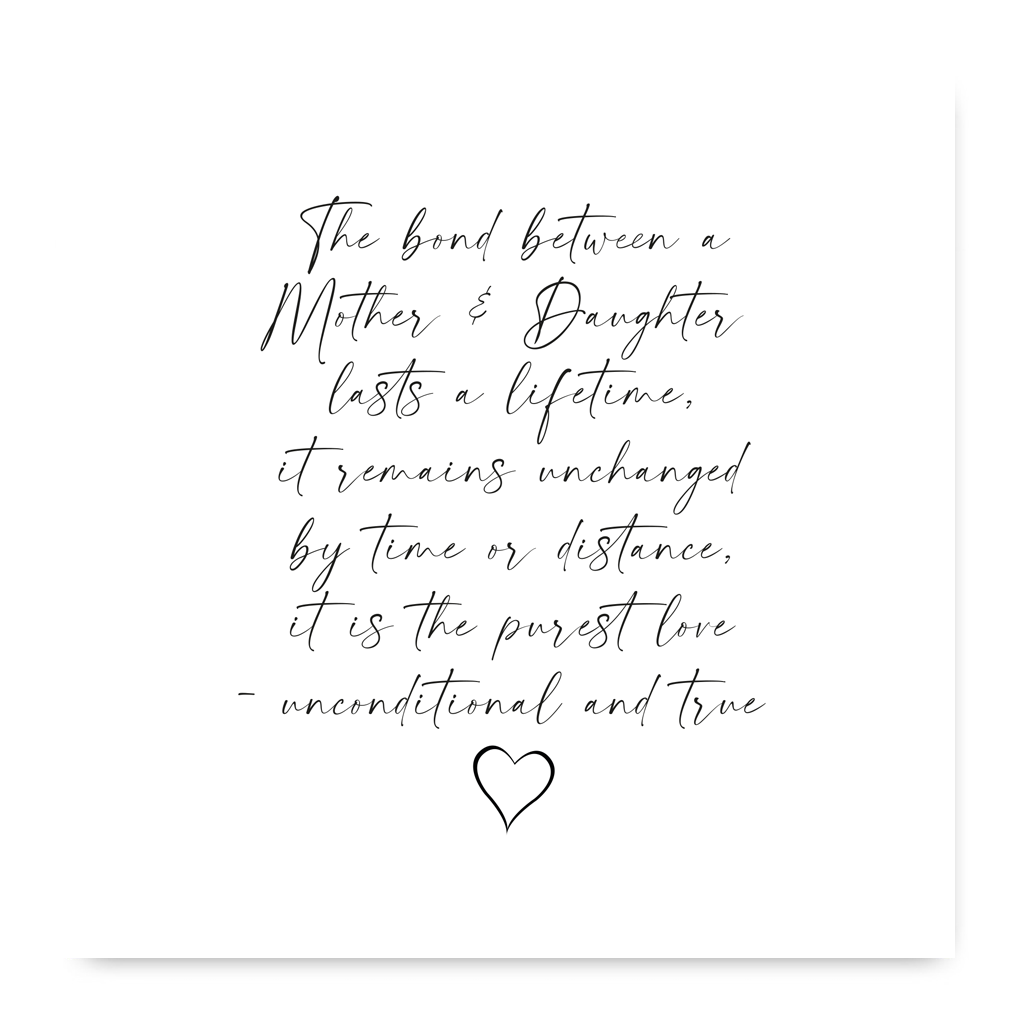 The bond between a
Mother & Daughter
lasts a lifetime,
it remains unchanged
by time or distance,
it is the purest love
- unconditional and true